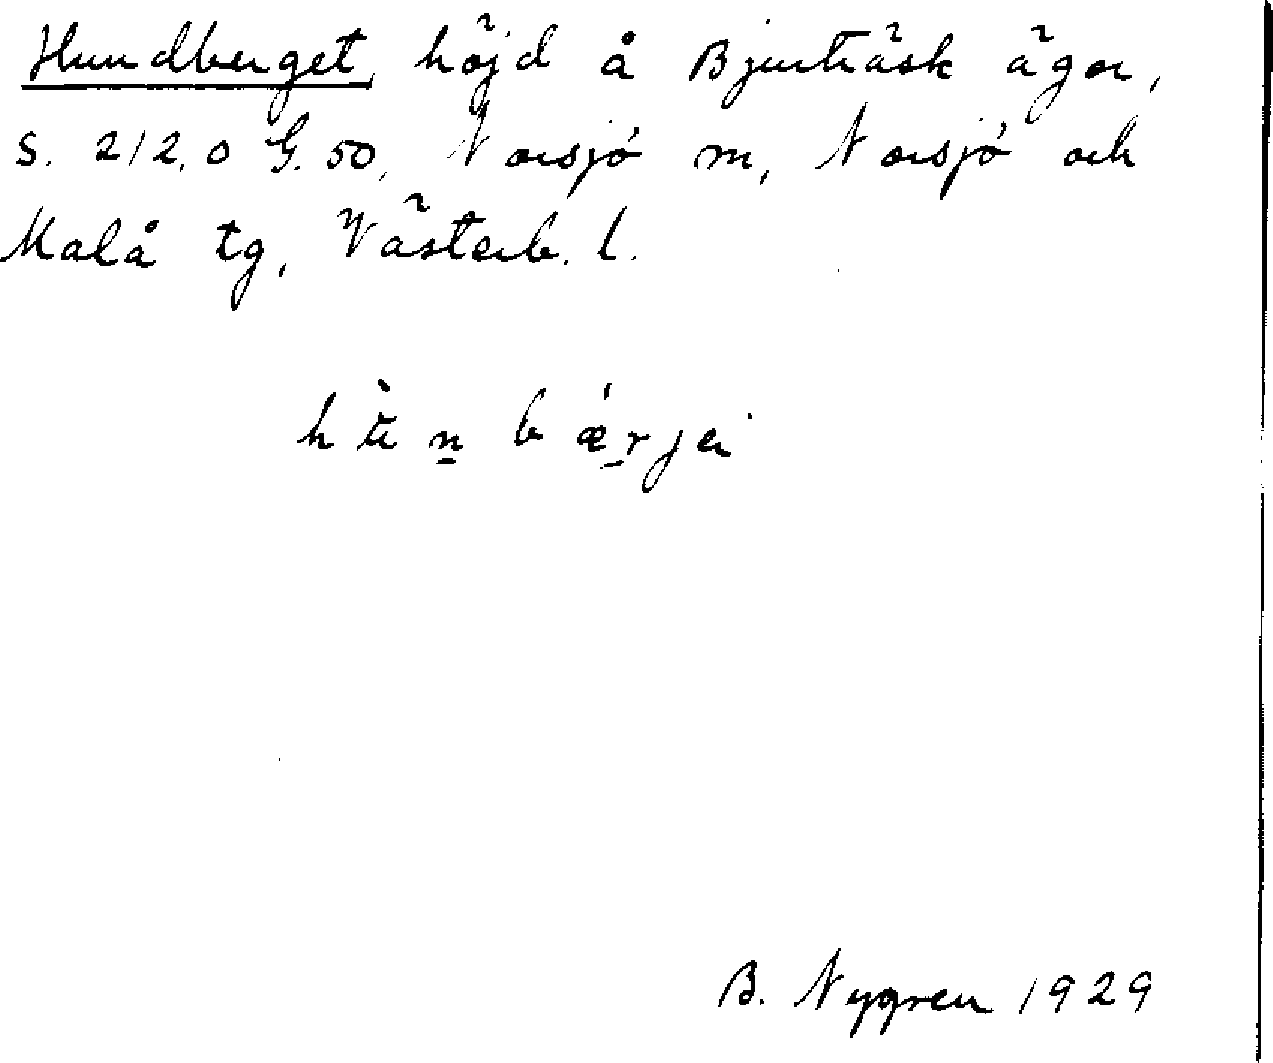 Hundberget, höjd å Bjurträsk ägor,
S. 212, o G. 50, Norsjö sn, Norsjö och
Malå tg, Västerb. l.
hùn bǽrjei
B. Nygren 1929